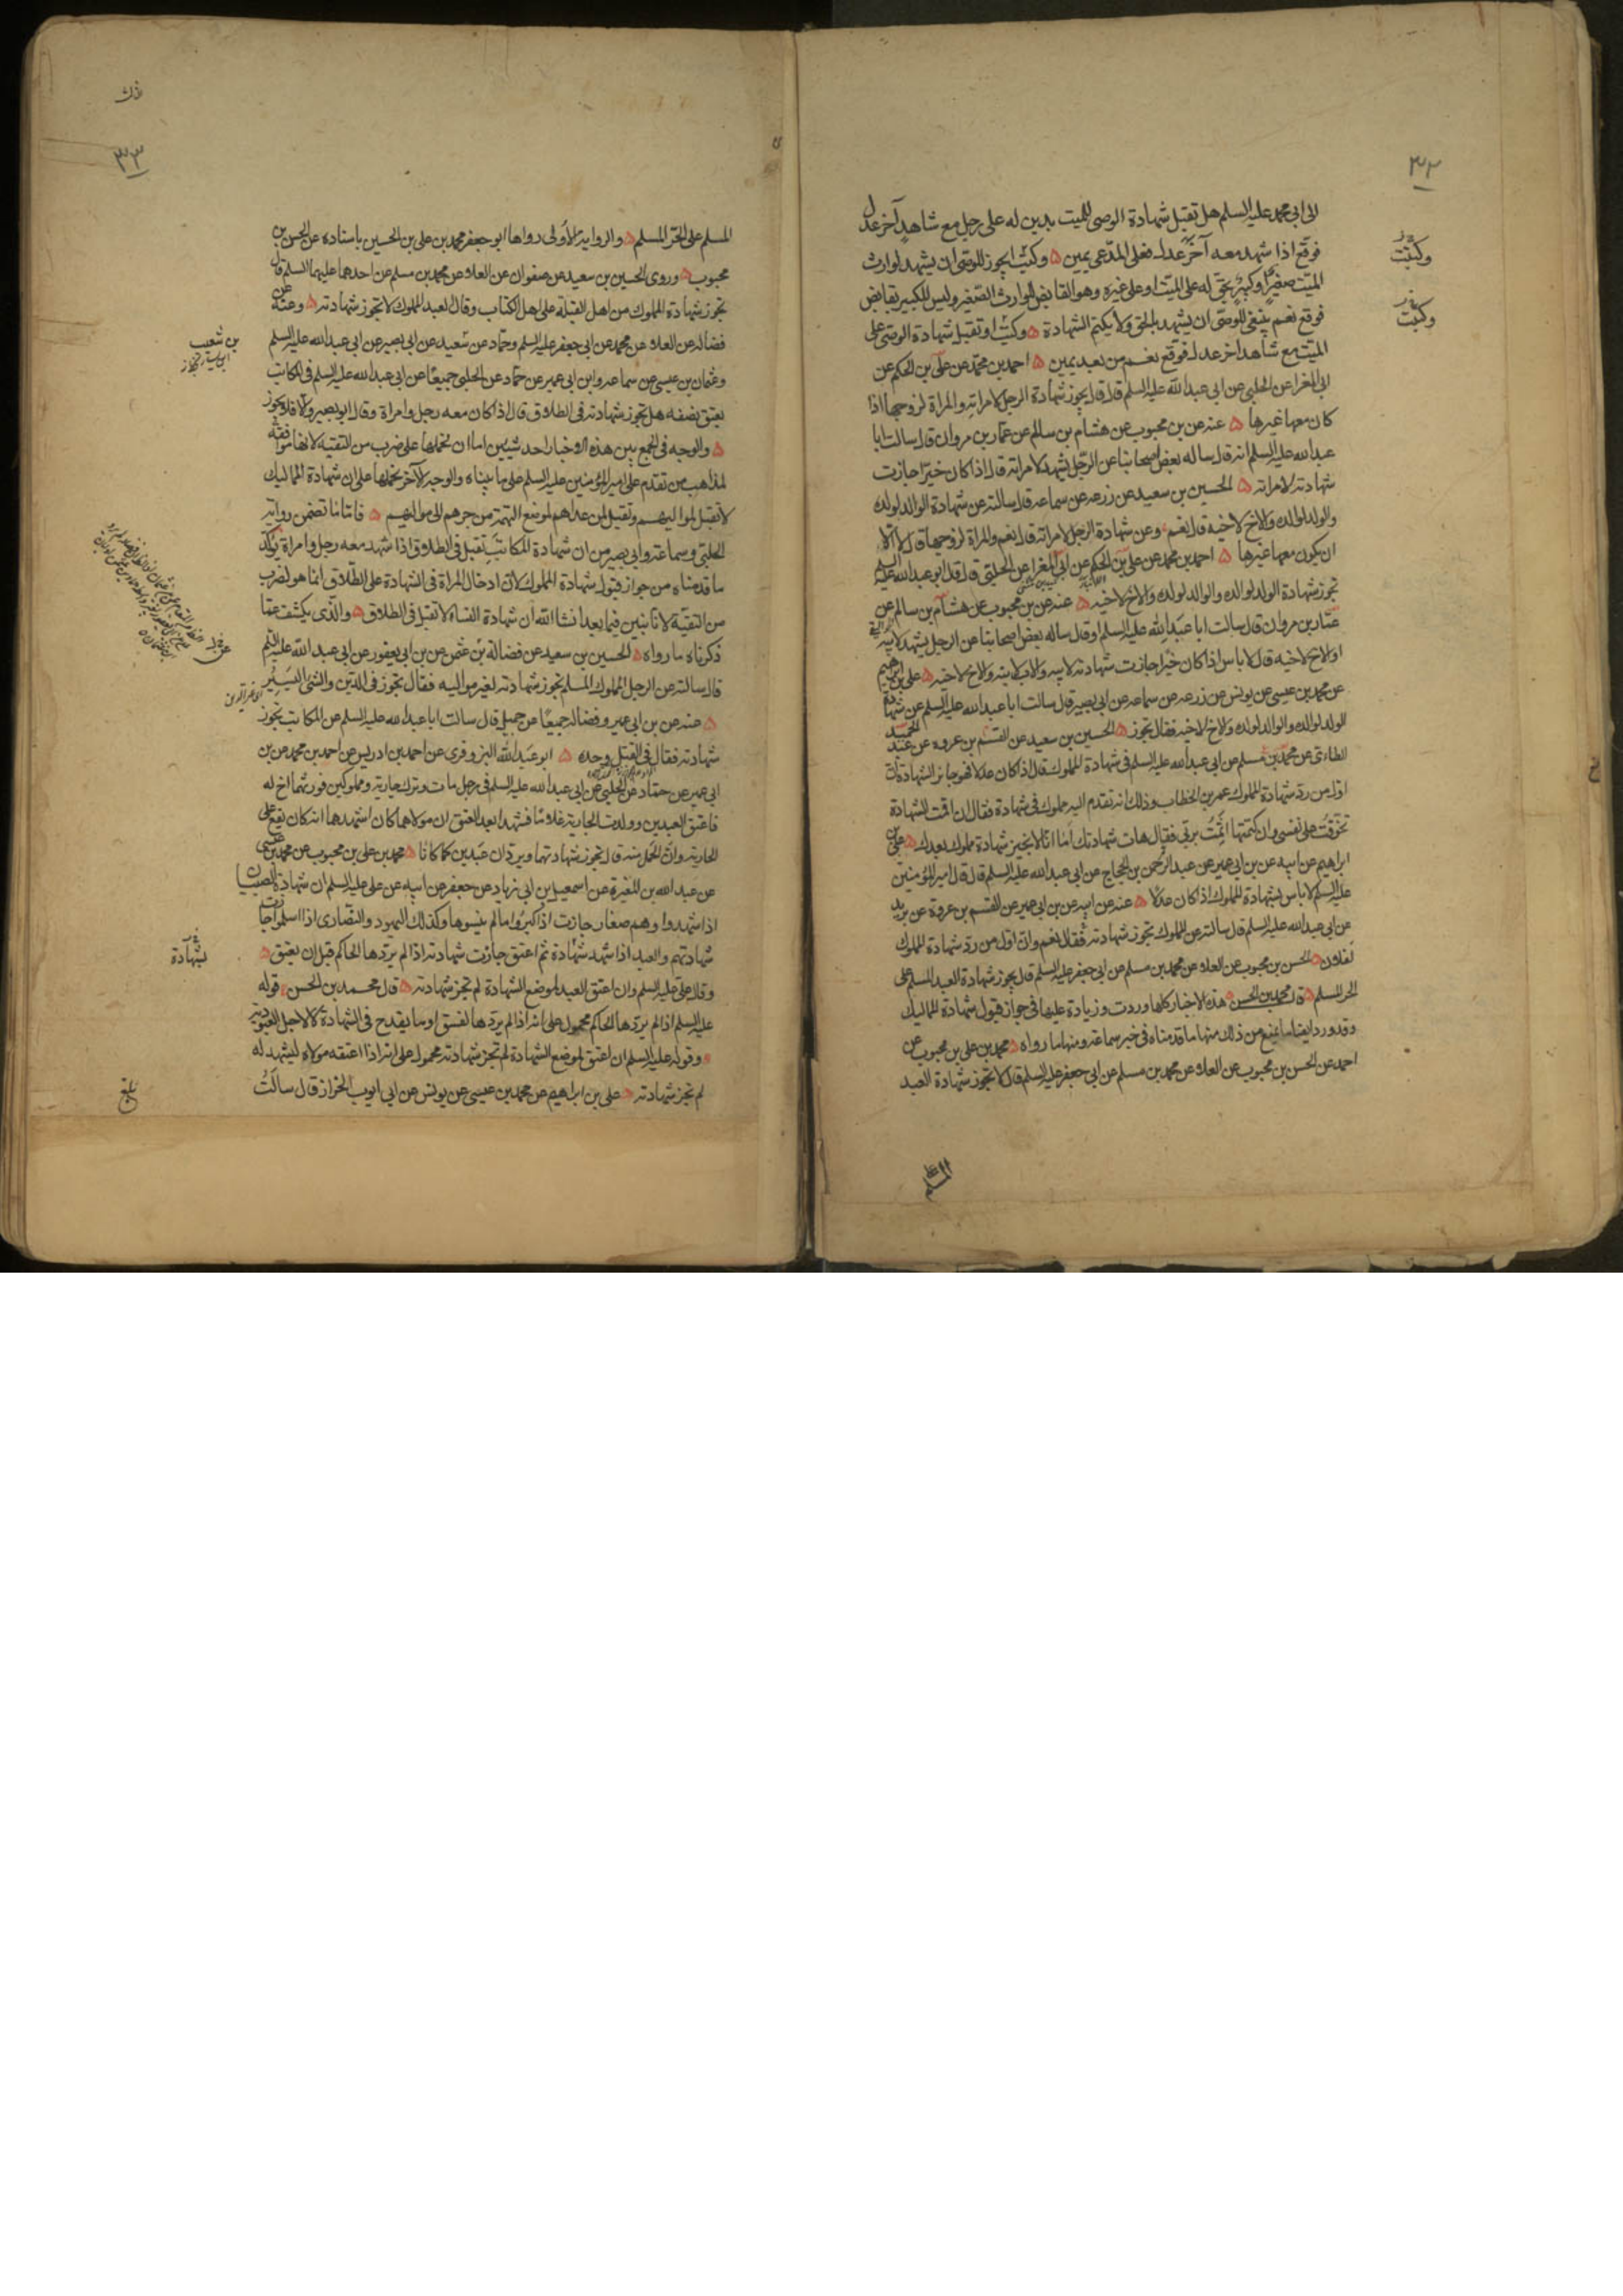 ٣٢
الى ابى محمد عليه السلم هل تقبل شهادة الوصى للميت بدين له على رجل مع شاهد آخر عدل
فوقع اذا شهد معه آخر عدل فعلى المدعى يمين ٥ وكتب ايجوز للوصى ان يشهد لوارث
الميت صغير او كبير بحق له على الميت او على غيره وهو القابض للوارث الصغير وليس للكبير بقابض
فوقع نعم ينبغى للوصى ان يشهد بالحق ولا يكتم الشهادة ٥ وكتب او تقبل شهادة الوصى على
الميت مع شاهد اخر عدل فوقع نعم من بعد يمين ٥ احمد بن محمد عن على بن الحكم عن
ابى المغرا عن الحلبى عن ابى عبد الله عليه السلم قال قال يجوز شهادة الرجل لامراته والمراة لزوجها اذا
كان معها غيرها ٥ عنه عن بن محبوب عن هشام بن سالم عن عمار بن مروان قال سالت ابا
عبد الله عليه السلم انه قال ساله بعض اصحابنا عن الرجل يشهد لامراته قال اذا كان خيرا جازت
شهادته لامراته ٥ الحسين بن سعيد عن زرعه عن سماعه قال سالته عن شهادة الوالد لولده
والولد لوالده والاخ لاخيه قال نعم وعن شهادة الرجل لامراته قال نعم والمراة لزوجها قال لا الا
ان يكون معها غيرها ٥ احمد بن محمد عن على بن الحكم عن ابى المغرا عن الحلبى قال قال ابو عبد الله عليه السلم
تجوز شهادة الولد لوالده والوالد لولده والاخ لاخيه ٥ عنه عن بن محبوب عن هشام بن سالم عن
عمار بن مروان قال سالت ابا عبد الله عليه السلم او قال ساله بعض اصحابنا عن الرجل يشهد لابيه
او لاخ لاخيه قال لا باس اذا كان خيرا جازت شهادته لابيه والاب لابنه والاخ لاخيه ٥ على بن ابرهيم
عن محمد بن عيسى عن يونس عن زرعه عن سماعه عن ابى بصير قال سالت ابا عبد الله عليه السلم عن شهادة
الولد لوالده والوالد لولده والاخ لاخيه فقال تجوز ٥ الحسين بن سعيد عن القسم بن عروه عن عبد الحميد
الطاءى عن محمد بن مسلم عن ابى عبد الله عليه السلم فى شهادة المملوك قال اذا كان عدلا فهو جائز الشهادة ان
اول من رد شهادة المملوك عمر بن الخطاب وذلك انه تقدم اليه مملوك فى شهادة فقال ان اقمت الشهادة
تخوفت على نفسى وان كتمتها اثمت بربى فقال هات شهادتك اما انا لا نجيز شهادة مملوك بعدك ٥ على بن
ابراهيم عن ابيه عن بن ابى عمير عن عبد الرحمن بن الحجاج عن ابى عبد الله عليه السلم قال قال امير المؤمنين
عليه السلم لا باس بشهادة المملوك اذا كان عدلا ٥ عنه عن ابيه عن بن ابى عمير عن القسم بن عروة عن بريد
عن ابى عبد الله عليه السلم قال سالته عن المملوك تجوز شهادته فقال نعم وان اول من رد شهادة المملوك
لفلان ٥ الحسن بن محبوب عن العلا عن محمد بن مسلم عن ابى جعفر عليه السلم قال يجوز شهادة العبد المسلم على
الحر المسلم ٥ قال محمد بن الحسن هذه الاخبار كلها وردت وزيادة عليها فى جواز قبول شهادة المماليك
وقد ورد ايضا ما يمنع من ذلك منها ما قدمناه فى خبر سماعه ومنها ما رواه ٥ محمد بن على بن محبوب عن
احمد عن الحسن بن محبوب عن العلا عن محمد بن مسلم عن ابى جعفر عليه السلم قال لا تجوز شهادة العبد
وكتبت
وكتبت
المسلم
٣٣
المسلم على الحر المسلم ٥ والرواية الاولى رواها ابو جعفر محمد بن على بن الحسين باسناده عن الحسن بن
محبوب ٥ وروى الحسين بن سعيد عن صفوان عن العلا عن محمد بن مسلم عن احدهما عليهما السلم قال
تجوز شهادة المملوك من اهل القبلة على اهل الكتاب وقال العبد المملوك لا تجوز شهادته ٥ وعنه عن
فضاله عن العلا عن محمد عن ابى جعفر عليه السلم وحماد عن شعيد عن ابى بصير عن ابى عبد الله عليه السلم
وعثمان بن عيسى عن سماعه وابن ابى عمير عن حماد عن الحلبى جميعا عن ابى عبد الله عليه السلم فى المكاتب
يعتق نصفه هل تجوز شهادته فى الطلاق قال اذا كان معه رجل وامراة وقال ابو بصير والا فلا يجوز
٥ والوجه فى الجمع بين هذه الاخبار احد شيين اما ان نحملها على ضرب من التقيه لانها موافقة
لمذاهب من تقدم على امير المؤمنين عليه السلم على ما بيناه والوجه الآخر نحملها على ان شهادة المماليك
لا تقبل لمواليهم وتقبل لمن عداهم لموضع التهمة من جرهم الى مواليهم ٥ فاما ما تضمن رواية
الحلبى وسماعة وابى بصير من ان شهادة المكاتب تقبل فى الطلاق اذا شهد معه رجل وامراة يؤكد
ما قدمناه من جواز قبول شهادة المملوك لان ادخال المراة فى الشهادة على الطلاق انما هو لضرب
من التقية لانا نبين فيما بعد انشا الله ان شهادة النساء لا تقبل فى الطلاق ٥ والذى يكشف عما
ذكرناه ما رواه ٥ الحسين بن سعيد عن فضالة بن عثمن عن بن ابى يعفور عن ابى عبد الله عليه السلم
قال سالته عن الرجل المملوك المسلم تجوز شهادته لغير مواليه فقال تجوز فى الدين والشى اليسير
٥ عنه عن بن ابى عمير وفضاله جميعا عن جميل قال سالت ابا عبد الله عليه السلم عن المكاتب تجوز
شهادته فقال فى القتل وحده ٥ ابو عبد الله البزوفرى عن احمد بن ادريس عن احمد بن محمد عن بن
ابى عمير عن حماد عن الحلبى عن ابى عبد الله عليه السلم فى رجل مات وترك جارية ومملوكين فورثهما اخ له
فاعتق العبدين وولدت الجارية غلاما فشهدا بعد العتق ان مولاهما كان اشهدهما انه كان يقع على
الجارية وان الحمل منه قال تجوز شهادتهما ويردان عبدين كما كانا ٥ محمد بن على بن محبوب عن محمد بن عيسى
عن عبد الله بن المغيرة عن اسمعيل بن ابى زياد عن جعفر عن ابيه عن على عليه السلم ان شهادة الصبيان
اذا شهدوا وهم صغار جازت اذا كبروا ما لم ينسوها وكذلك اليهود والنصارى اذا اسلموا جازت
شهادتهم والعبد اذا شهد شهادة ثم اعتق جازت شهادته اذا لم يردها الحاكم قبل ان يعتق ٥
وقال على عليه السلم وان اعتق العبد لموضع الشهادة لم تجز شهادته ٥ قال محمد بن الحسن قوله
عليه السلم اذا لم يردها الحاكم محمول على انه اذا لم يردها لفسق او ما يقدح فى الشهادة لا لاجل العبودية
٥ وقوله عليه السلم ان اعتق لموضع الشهادة لم تجز شهادته محمول على انه اذا اعتقه مولاه ليشهد له
لم تجز شهادته ٥ على بن ابراهيم عن محمد بن عيسى عن يونس عن ابى ايوب الخزاز قال سالت
بن شعيب
بشهادة
بلغ